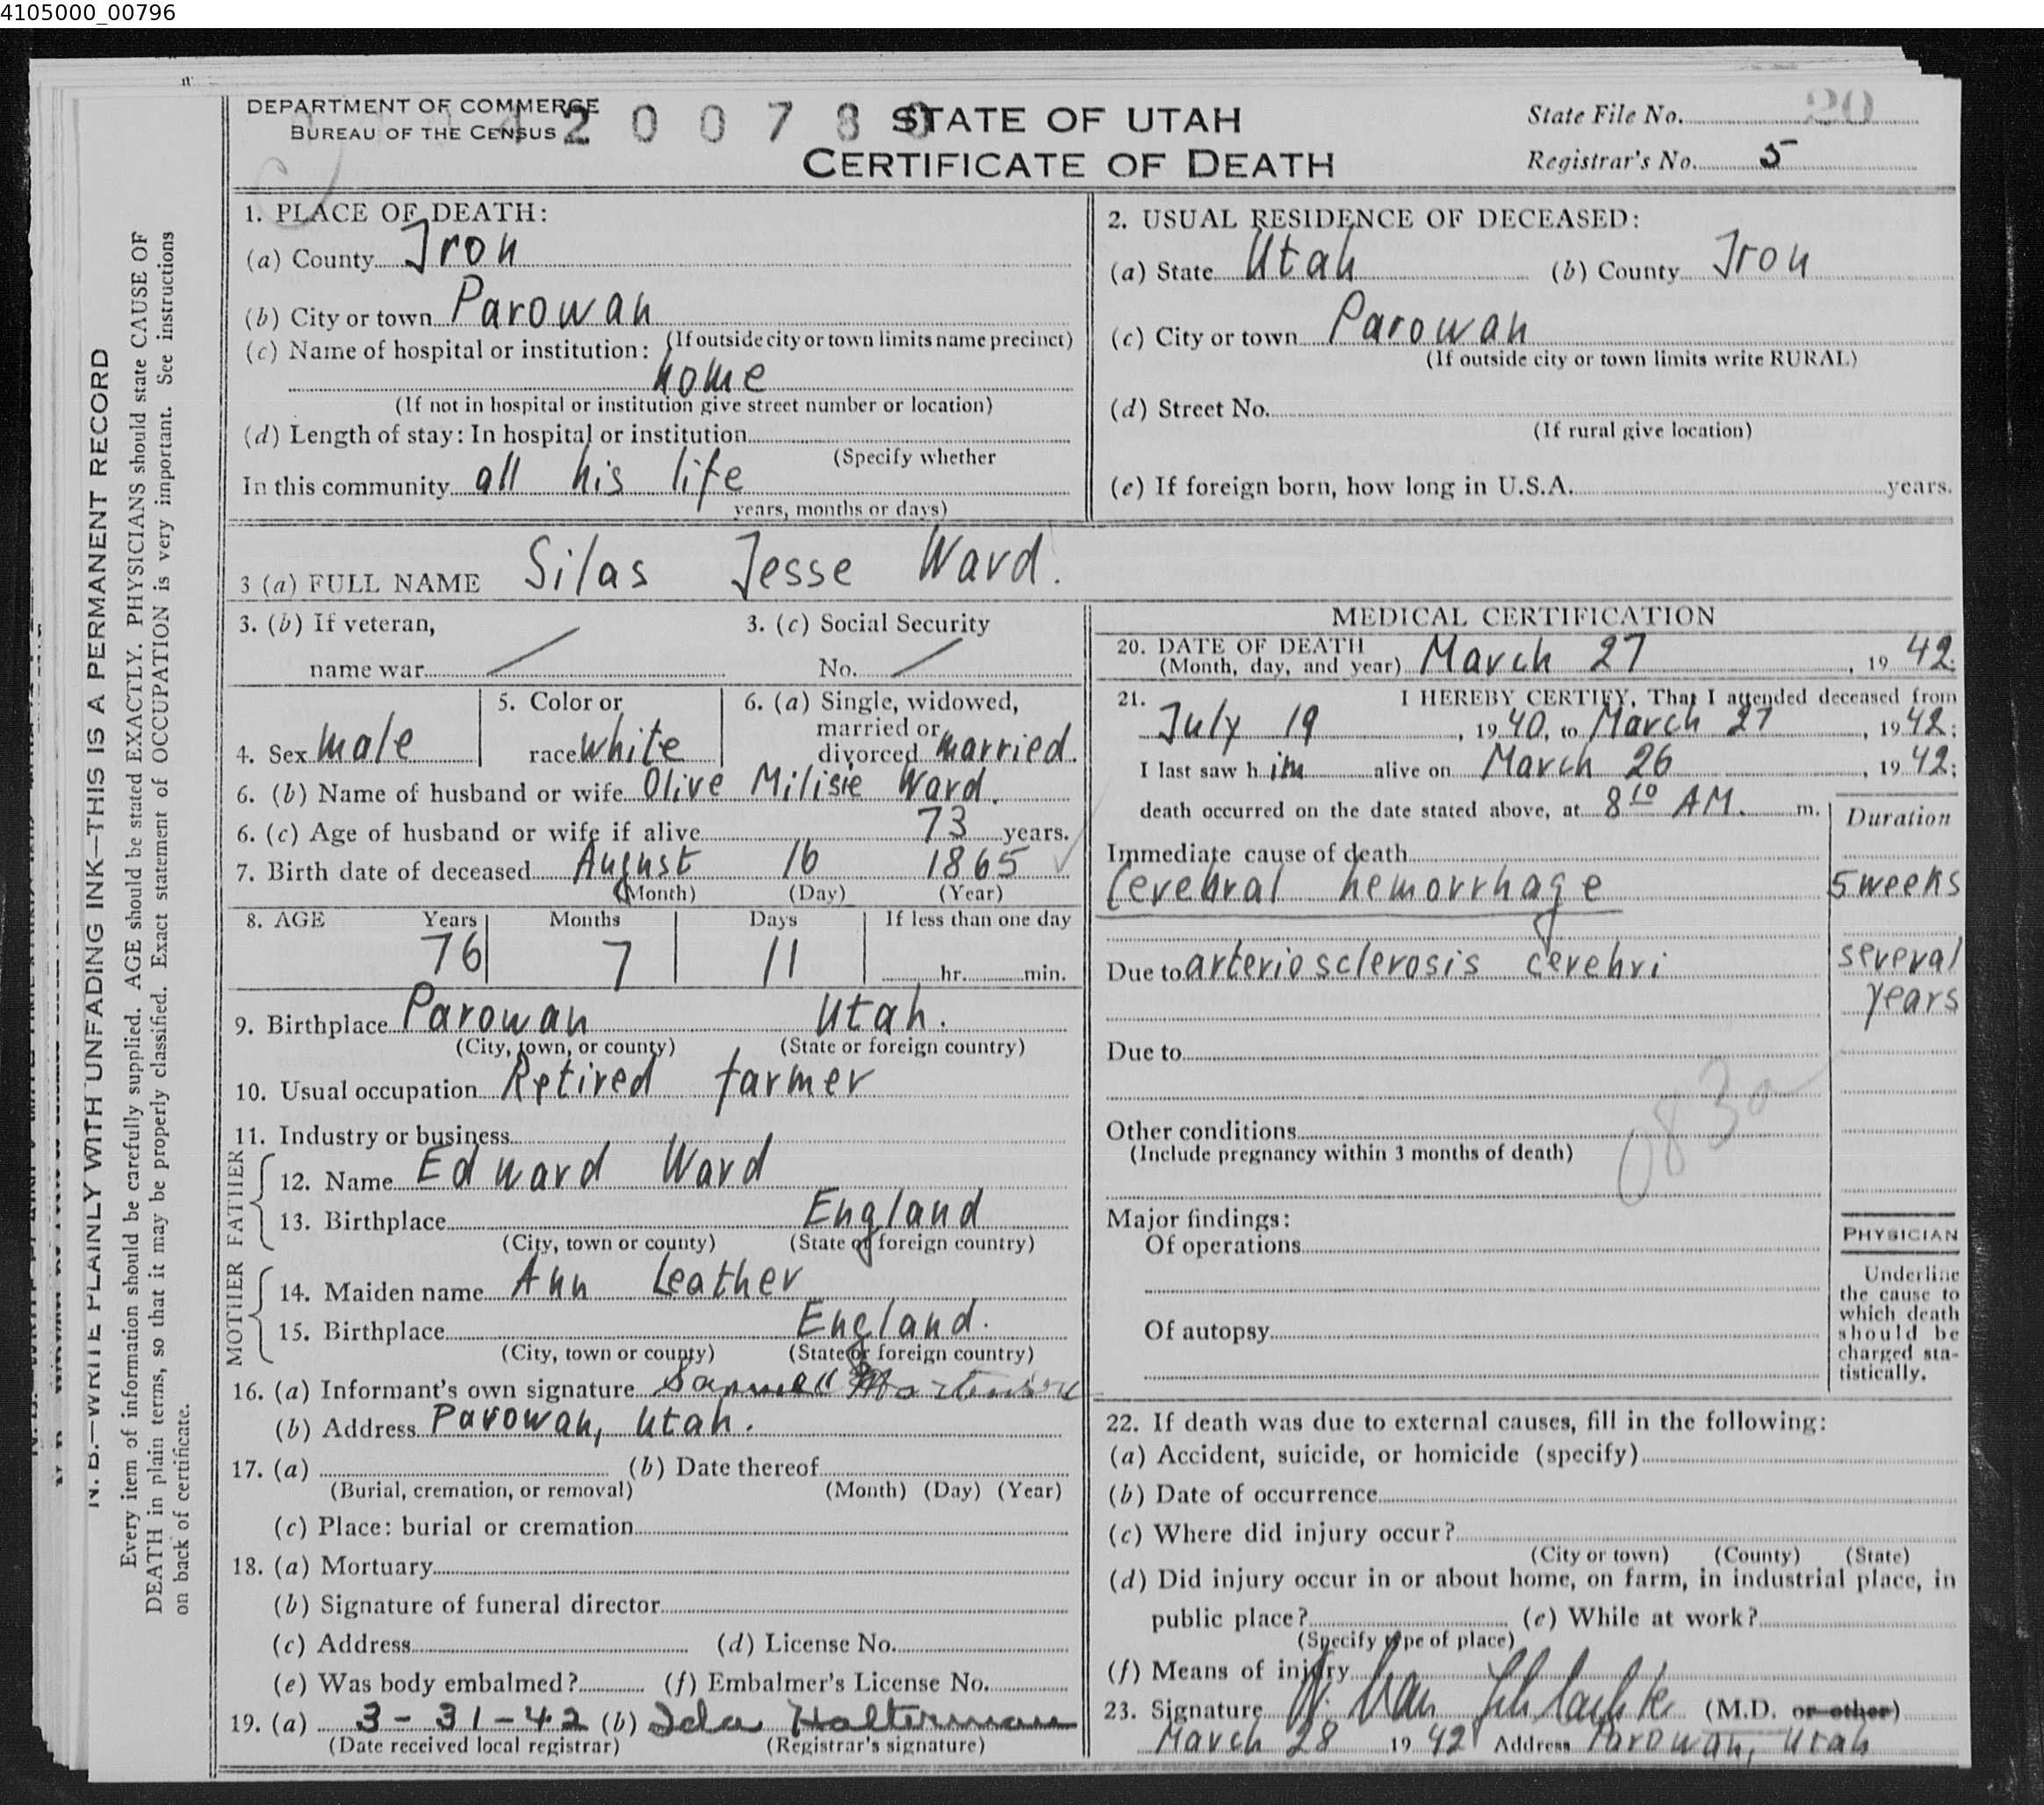 4105000_00796
DEPARTMENT OF COMMERCE
BUREAU OF THE CENSUS
4 2 0 0 7 8 0
STATE OF UTAH
CERTIFICATE OF DEATH
State File No. 20
Registrar's No. 5
N. B.—WRITE PLAINLY WITH UNFADING INK—THIS IS A PERMANENT RECORD
Every item of information should be carefully supplied. AGE should be stated EXACTLY. PHYSICIANS should state CAUSE OF
DEATH in plain terms, so that it may be properly classified. Exact statement of OCCUPATION is very important. See instructions
on back of certificate.
1. PLACE OF DEATH:
(a) County Iron
(b) City or town Parowan
(If outside city or town limits name precinct)
(c) Name of hospital or institution:
home
(If not in hospital or institution give street number or location)
(d) Length of stay: In hospital or institution
(Specify whether
In this community all his life
years, months or days)
2. USUAL RESIDENCE OF DECEASED:
(a) State Utah (b) County Iron
(c) City or town Parowan
(If outside city or town limits write RURAL)
(d) Street No.
(If rural give location)
(e) If foreign born, how long in U.S.A. years.
3 (a) FULL NAME Silas Jesse Ward.
3. (b) If veteran,
name war
3. (c) Social Security
No.
4. Sex male
5. Color or
race white
6. (a) Single, widowed,
married or
divorced married.
6. (b) Name of husband or wife Olive Milisie Ward.
6. (c) Age of husband or wife if alive 73 years.
7. Birth date of deceased August 16 1865
(Month) (Day) (Year)
8. AGE Years Months Days If less than one day
76 7 11 hr. min.
9. Birthplace Parowan Utah.
(City, town, or county) (State or foreign country)
10. Usual occupation Retired farmer
11. Industry or business
FATHER
12. Name Edward Ward
13. Birthplace England
(City, town or county) (State or foreign country)
MOTHER
14. Maiden name Ann Leather
15. Birthplace England.
(City, town or county) (State or foreign country)
16. (a) Informant's own signature Samuel Mortenson
(b) Address Parowan, Utah.
17. (a) (b) Date thereof
(Burial, cremation, or removal) (Month) (Day) (Year)
(c) Place: burial or cremation
18. (a) Mortuary
(b) Signature of funeral director
(c) Address (d) License No.
(e) Was body embalmed? (f) Embalmer's License No.
19. (a) 3-31-42 (b) Ida Halterman
(Date received local registrar) (Registrar's signature)
MEDICAL CERTIFICATION
20. DATE OF DEATH
(Month, day, and year) March 27, 19 42.
21. I HEREBY CERTIFY, That I attended deceased from
July 19, 1940, to March 27, 1942;
I last saw him alive on March 26, 1942;
death occurred on the date stated above, at 8 10 AM. m.
Duration
Immediate cause of death
Cerebral hemorrhage 5 weeks
Due to arteriosclerosis cerebri several
years
Due to
083a
Other conditions
(Include pregnancy within 3 months of death)
Major findings:
Of operations
Of autopsy
PHYSICIAN
Underline
the cause to
which death
should be
charged sta-
tistically.
22. If death was due to external causes, fill in the following:
(a) Accident, suicide, or homicide (specify)
(b) Date of occurrence
(c) Where did injury occur?
(City or town) (County) (State)
(d) Did injury occur in or about home, on farm, in industrial place, in
public place? (e) While at work?
(Specify type of place)
(f) Means of injury
23. Signature (M.D. or other)
March 28 19 42 Address Parowan, Utah